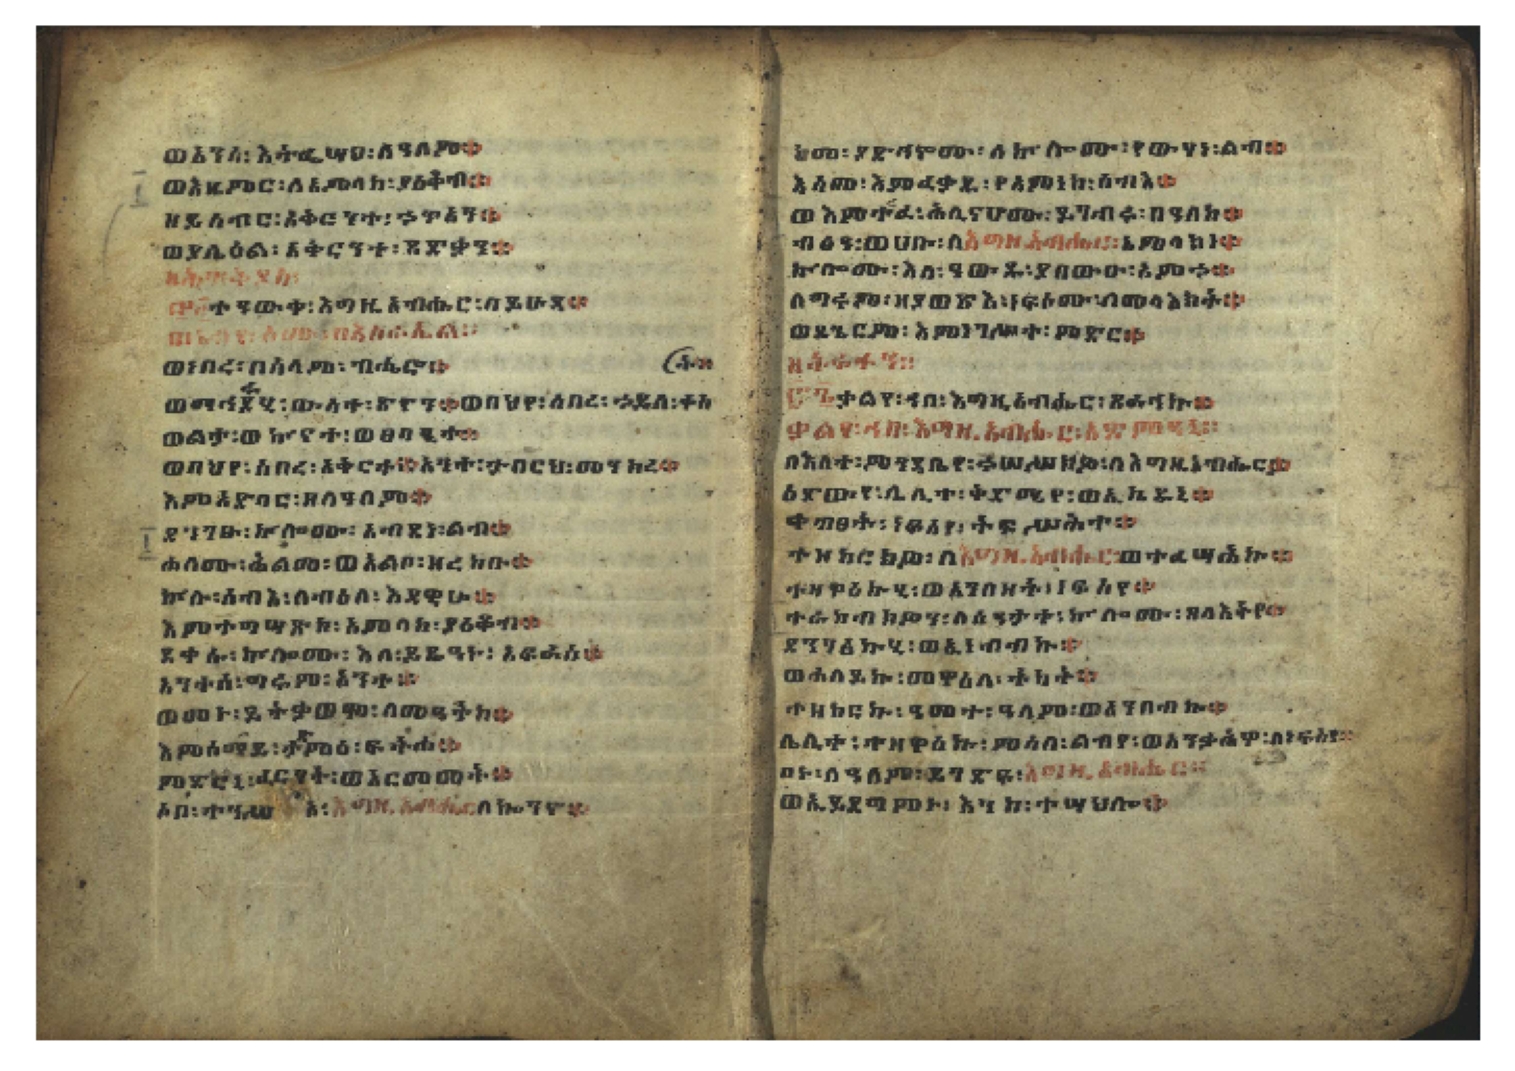 ወአንሰ፡እትፌሣሕ፡ለዓለም።
ወእዜምር፡ለአምላከ፡ያዕቆብ።
ዘይሰብር፡አቅርንተ፡ኃጥአን።
ወያሌዕል፡አቅርንተ፡ጻድቃን።
ተዓውቀ፡እግዚአብሔር፡በይሁዳ።
በእስራኤል።
ወነበረ፡በሰላም፡ብሔሮ።
ት።
ወማኅደሪሁ፡ውስተ፡ጽዮን።ወበህየ፡ሰበረ፡ኃይለ፡ቀስ
ወልታ፡ወኵናተ፡
ወበህየ፡ሰበረ፡አቅርተ።አንተ፡ታበርህ፡መንክረ።
እምአድባር፡ዘለዓለም።
ደንገፁ፡ኵሎሙ፡አብዳነ፡ልብ።
ሐለሙ፡ሕልመ፡ወአልቦ፡ዘረከቡ።
ኵሉ፡ሰብአ፡ለብዕለ፡እደዊሁ።
እምተግሣጽከ፡አምላከ፡ያዕቆብ።
ደቀሱ፡ኵሎሙ፡እለ፡ይጼዓኑ፡አፍራሰ።
አንተሰ፡ግሩም፡አንተ።
ወመኑ፡ይትቃወሞ፡ለመዓትከ።
እምሰማይ፡ፍትሐ።
ምድርኒ፡ፈርሀት፡ወአርመመት።
ሶበ፡ተንሥአ፡እግዚአብሔር፡ለኰንኖ።
ከመ፡ያድኅኖሙ፡ለኵሎሙ፡የውሃነ፡ልብ።
እስመ፡እምፈቃዱ፡የአምነከ፡ሰብእ።
ወእምተረፈ፡ሕሊናሆሙ፡ይገብሩ፡በዓለከ።
ብፅዑ፡ወሀቡ፡ለእግዚአብሔር፡አምላክነ።
ኵሎሙ፡እለ፡ዓውዱ፡ያበውኡ፡አምኃ።
ለግሩም፡ዘያወፅእ፡ነፍሶሙ፡ለመላእክት።
ወይገርም፡እምነገሥተ፡ምድር።
ቃልየ፡ኀበ፡እግዚአብሔር፡ጸራኅኩ።
ቃልየ፡ኀበ፡እግዚአብሔር፡
በእለተ፡ምንዳቤየ፡ኃሠሥክዎ፡ለእግዚአብሔር።
እደውየ፡ሌሊተ፡ቅድሜየ፡ወኢኬዱኒ።
ነፍስየ፡ትፍሥሕተ።
ተዘከርክዎ፡ለእግዚአብሔር፡ወተፈሣሕኩ።
ተዛዋዕኩሂ፡ወአንበዘት፡ነፍስየ።
ኵሎሙ፡ጸላእትየ።
ደንገፅኩሂ፡ወኢነበብኩ።
ወሐለይኩ፡መዋዕለ፡ትካት።
ተዘከርኩ፡ዓመተ፡ዓለም፡ወአንበብኩ።
ሌሊተ፡ተዛዋዕኩ፡ምስለ፡ልብየ፡ወአንቃሕዋ፡ለነፍስየ።
ቦኑ፡ለዓለም፡ይገድፍ፡እግዚአብሔር።
ወኢይደግምኑ፡እንከ፡ተሣህሎ።